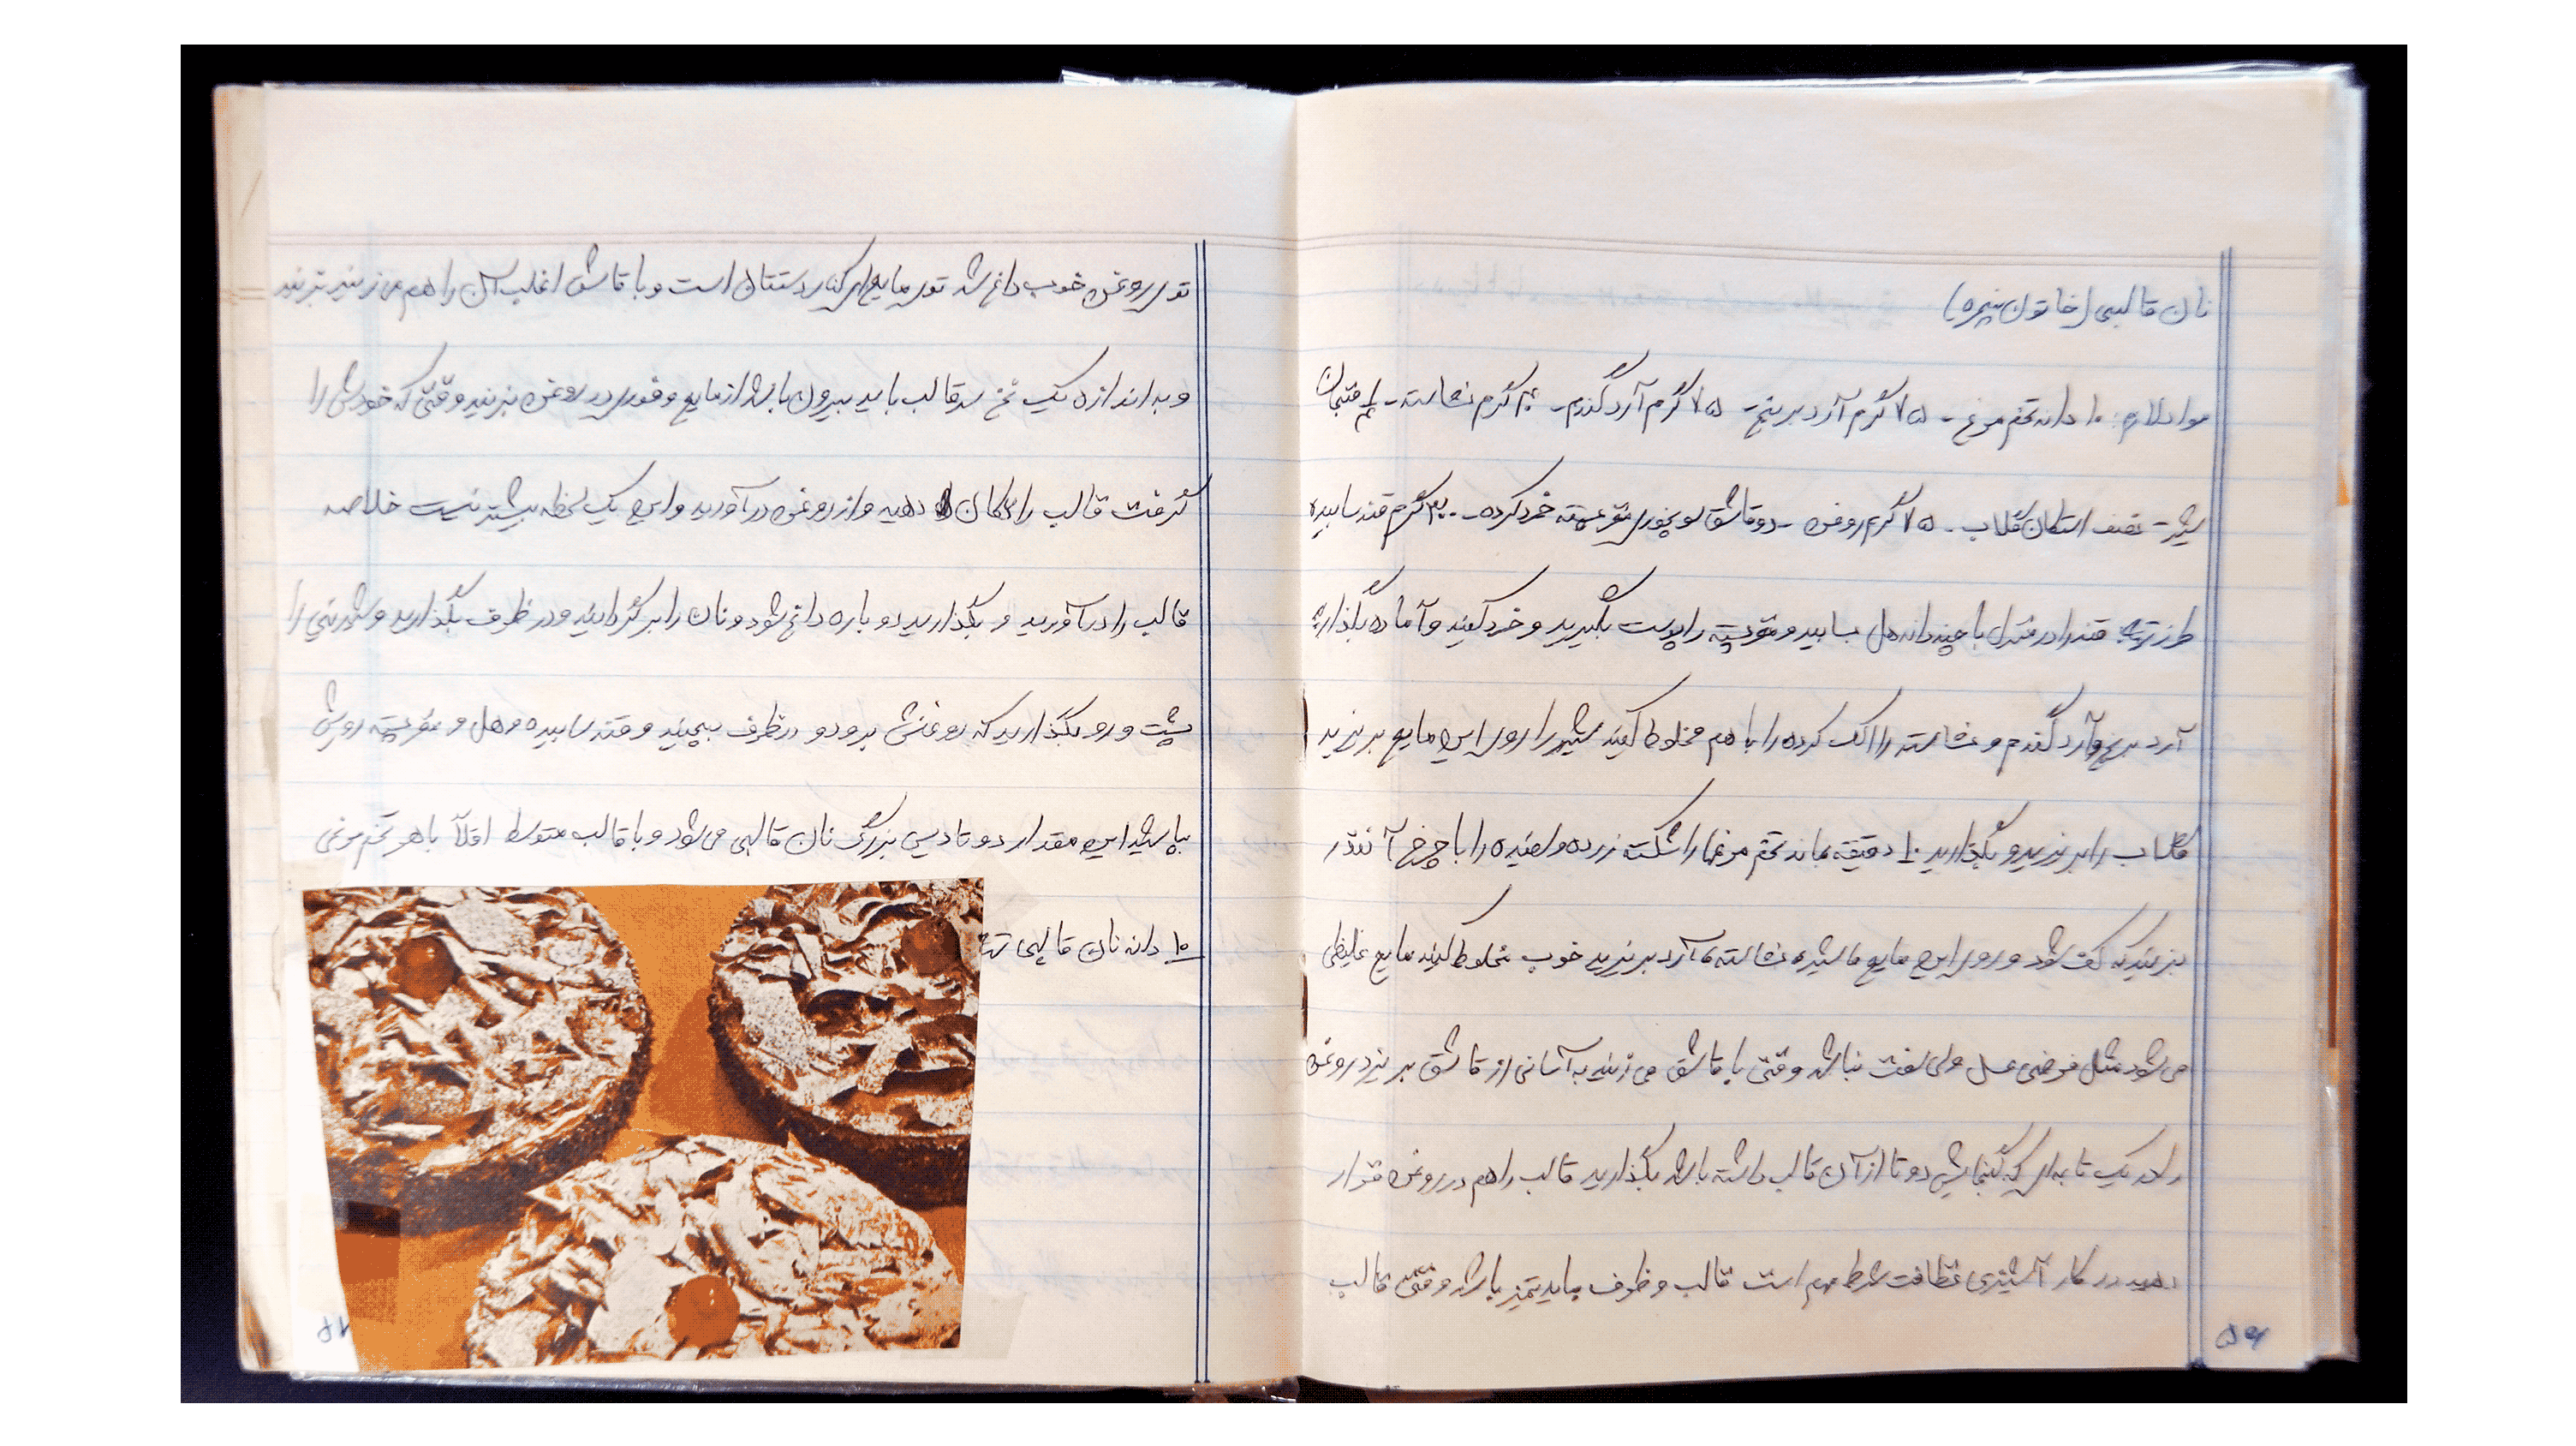 نان قالبی (خاتون پنجره)
مواد لازم: ۱۰ دانه تخم مرغ - ۷۵ گرم آرد برنج - ۷۵ گرم آرد گندم - گرم نشاسته - فنجان
شیر - نصف استکان گلاب - ۷۵ گرم روغن - دو قاشق سوپخوری مغز پسته خرد کرده - گرم قند سابیده
طرز تهیه: قند را در با چند دانه هل بسابید و مغز پسته را پوست بگیرید و خرد کنید و آماده بگذارید
آرد برنج و آرد گندم و نشاسته را الک کرده را با هم مخلوط کنید شیر را روی این مایع بریزید
گلاب را بریزید و بگذارید ۱۰ دقیقه بماند تخم مرغها را شکسته زرده و سفیده را با چرخ آنقدر
بزنید که کف شود و روی این مایع نشاسته آرد بریزید خوب مخلوط کنید مایع غلیظی
می شود مثل فرضی عسل ولی سفت نباشد وقتی با قاشق می زنید به آسانی از قاشق بریزد روغن
را در یک تابه ای که گنجایش دو تا از آن قالب داشته باشد بگذارید قالب را هم در روغن قرار
دهید در کار آشپزی نظافت شرط مهم است قالب و ظروف باید تمیز باشد وقتی قالب
۵۶
توی روغن خوب داغ شد توی مایع ای که دستتان است و با قاشق اغلب آن را هم می زنید بزنید
و به اندازه یک نخ سر قالب باید بیرون باشد از مایع و فوری در روغن بزنید وقتی که خودش را
گرفت قالب را تکان دهید و از روغن درآورید و این یک لحظه بیشتر نیست خلاصه
قالب را درآورید و بگذارید دوباره داغ شود و نان را برگردانید و در ظرف بگذارید و شیرینی را
پشت و رو بگذارید که روغنش برود و در ظرف بچینید و قند سابیده و هل و مغز پسته رویش
بپاشید این مقدار دو تا دیس بزرگ نان قالبی می شود و با قالب متوسط اقلاً با هر تخم مرغی
۱۰ دانه نان قالبی